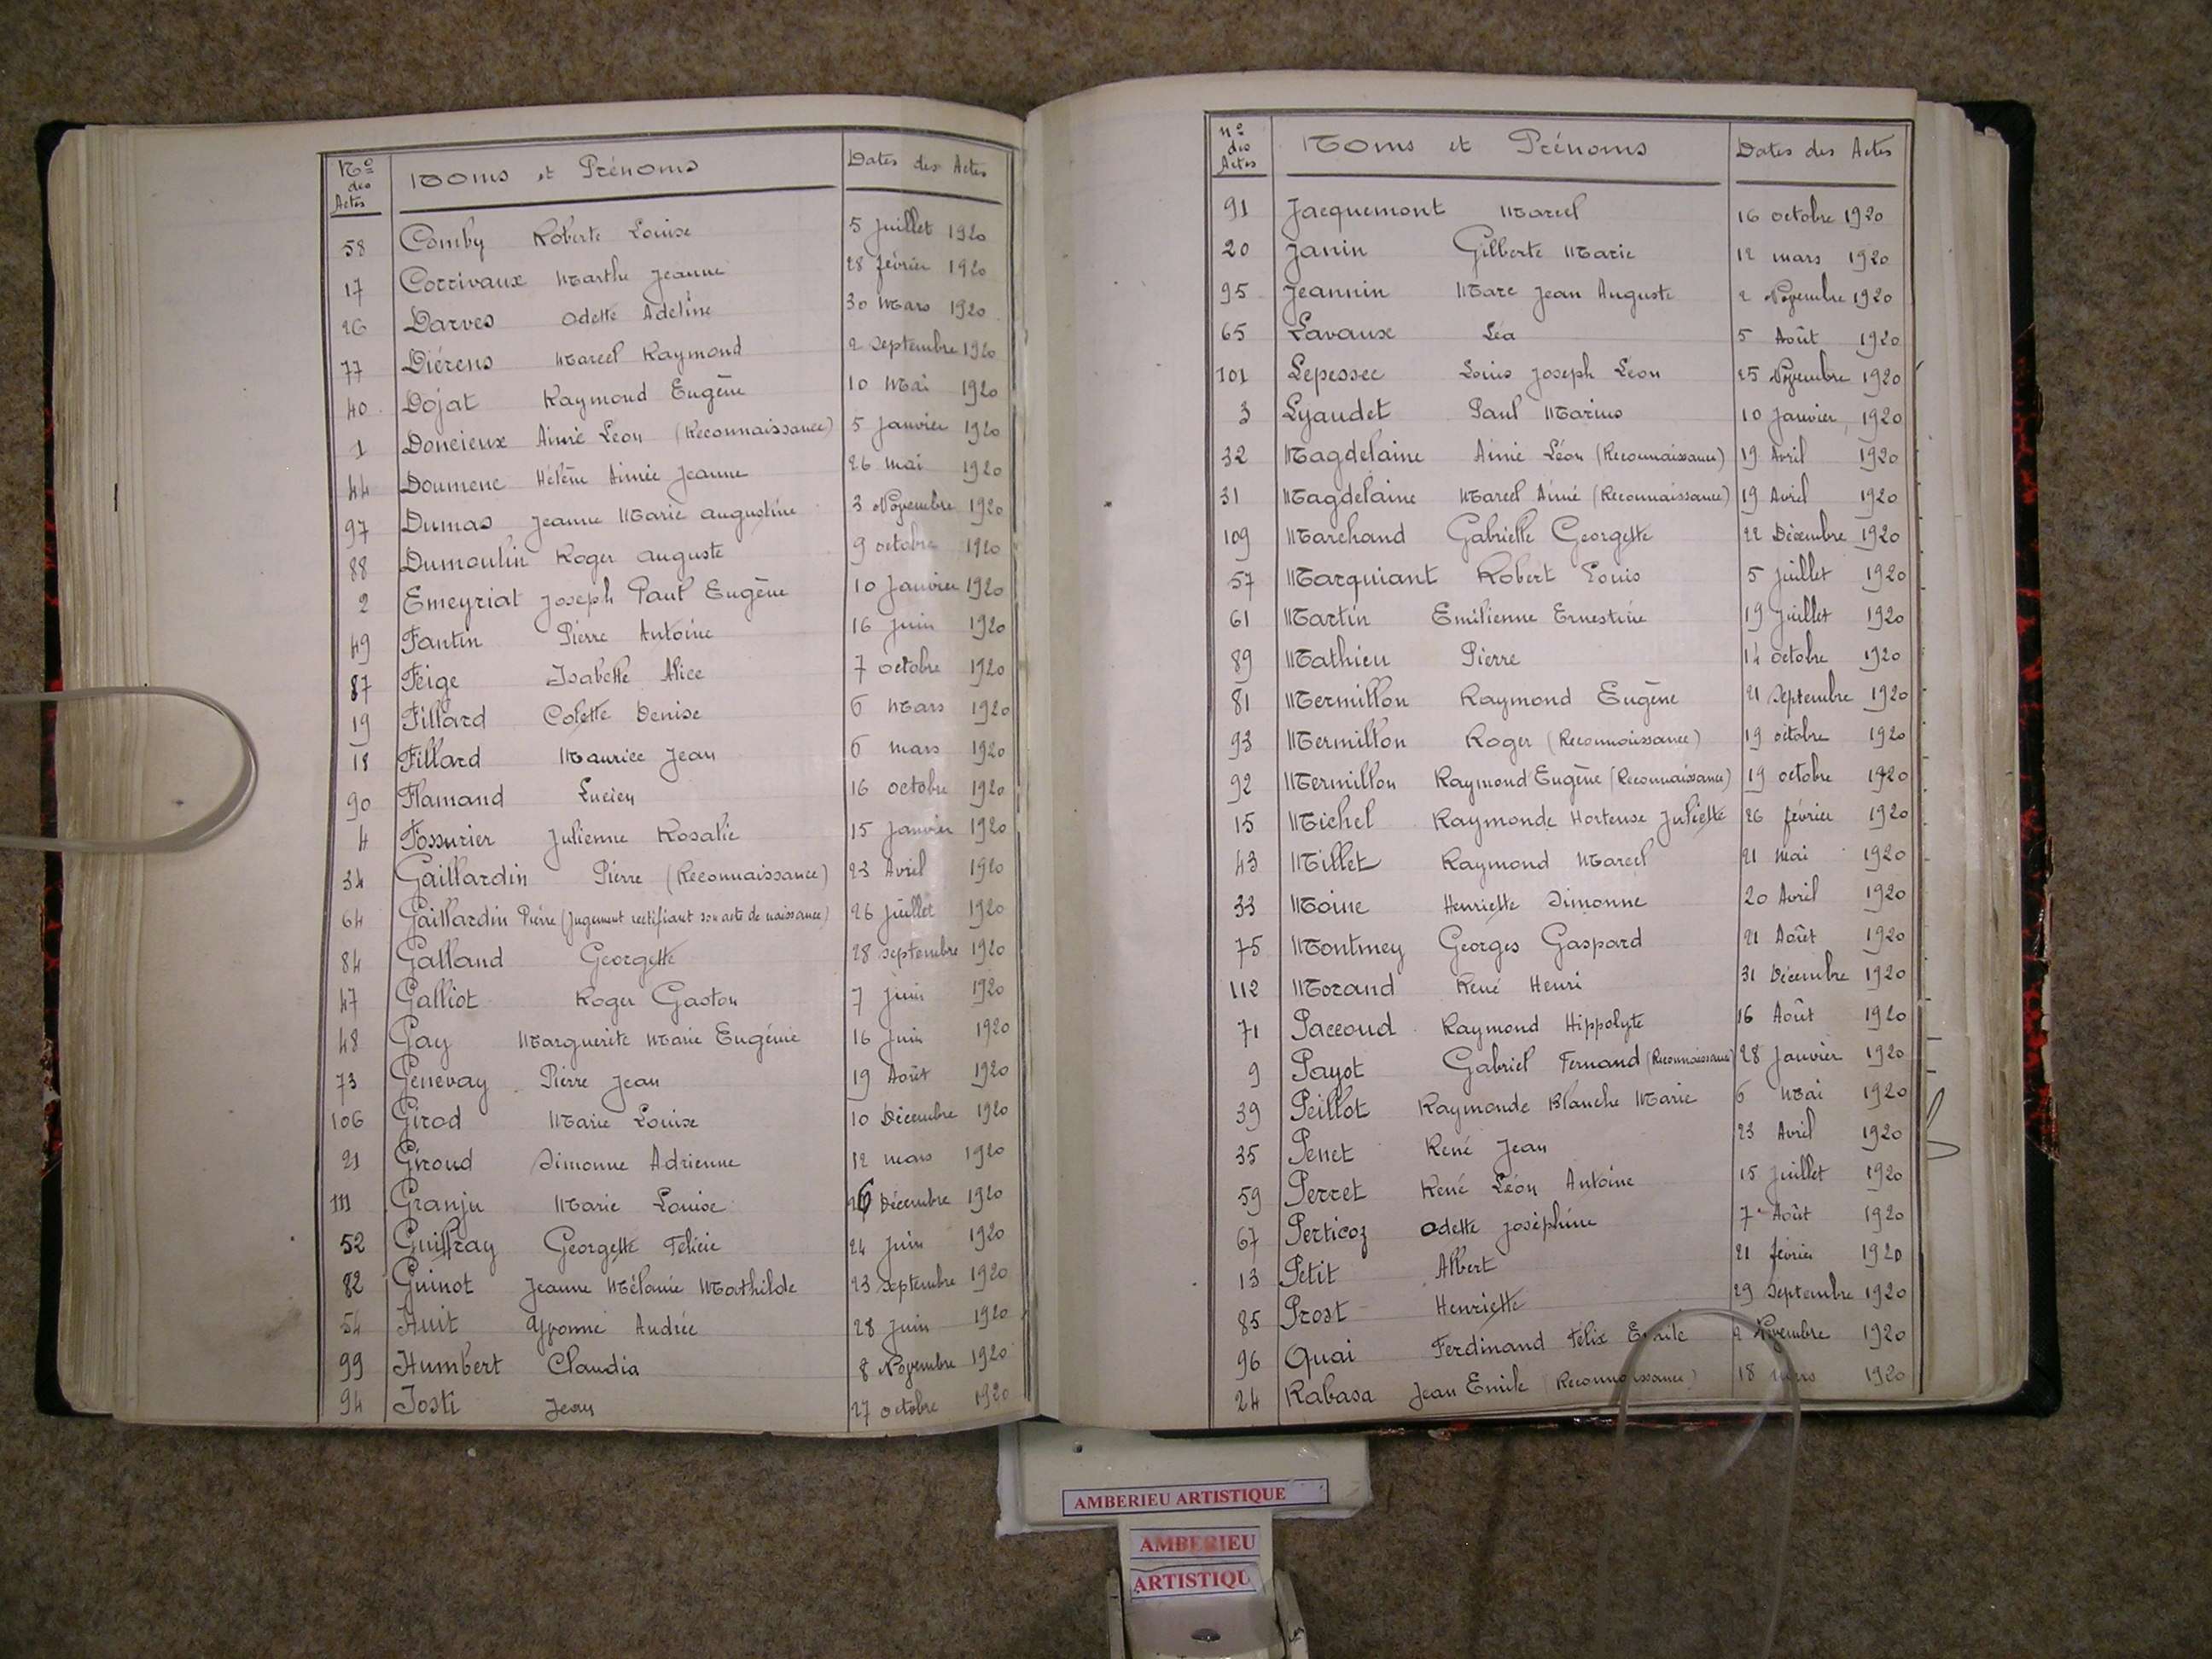 Nos des Actes Noms et Prénoms Dates des Actes
58 Comby Roberte Louise 5 Juillet 1920
17 Corrivaux Marthe Jeanne 28 février 1920
26 Darves Odette Adeline 30 Mars 1920
77 Diérens Marcel Raymond 2 Septembre 1920
40 Dojat Raymond Eugène 10 Mai 1920
1 Doncieux Aimé Léon (Reconnaissance) 5 Janvier 1920
44 Doumenc Hélène Aimée Jeanne 26 Mai 1920
97 Dumas Jeanne Marie Augustine 3 Novembre 1920
88 Dumoulin Roger Auguste 9 octobre 1920
2 Emeyriat Joseph Paul Eugène 10 Janvier 1920
49 Fantin Pierre Antoine 16 Juin 1920
87 Feige Isabelle Alice 7 octobre 1920
19 Fillard Colette Denise 6 Mars 1920
18 Fillard Maurice Jean 6 mars 1920
90 Flamand Lucien 16 octobre 1920
4 Fossurier Julienne Rosalie 15 Janvier 1920
34 Gaillardin Pierre (Reconnaissance) 23 Avril 1920
64 Gaillardin Pierre (Jugement rectifiant son acte de naissance) 26 Juillet 1920
84 Galland Georgette 28 septembre 1920
47 Galliot Roger Gaston 7 Juin 1920
48 Gay Marguerite Marie Eugénie 16 Juin 1920
73 Genevay Pierre Jean 19 Août 1920
106 Girod Marie Louise 10 Décembre 1920
21 Giroud Simonne Adrienne 12 mars 1920
111 Granju Marie Louise 26 Décembre 1920
52 Guiffray Georgette Félicie 24 Juin 1920
82 Guinot Jeanne Mélanie Mathilde 23 septembre 1920
54 Huit Yvonne Andrée 28 Juin 1920
99 Humbert Claudia 8 Novembre 1920
94 Josti Jean 27 octobre 1920
Nos des Actes Noms et Prénoms Dates des Actes
91 Jacquemont Marcel 16 octobre 1920
20 Janin Gilberte Marie 12 mars 1920
95 Jeannin Marc Jean Auguste 2 Novembre 1920
65 Lavaux Léa 5 Août 1920
101 Lepessec Louis Joseph Léon 25 Novembre 1920
3 Lyaudet Paul Marius 10 Janvier 1920
32 Magdelaine Aimé Léon (Reconnaissance) 19 Avril 1920
31 Magdelaine Marcel Aimé (Reconnaissance) 19 Avril 1920
109 Marchand Gabrielle Georgette 22 Décembre 1920
57 Marquiant Robert Louis 5 Juillet 1920
61 Martin Emilienne Ernestine 19 Juillet 1920
89 Mathieu Pierre 14 octobre 1920
81 Mermillon Raymond Eugène 21 Septembre 1920
93 Mermillon Roger (Reconnaissance) 19 octobre 1920
92 Mermillon Raymond Eugène (Reconnaissance) 19 octobre 1920
15 Michel Raymonde Hortense Juliette 26 février 1920
43 Millet Raymond Marcel 21 Mai 1920
33 Moine Henriette Simonne 20 Avril 1920
75 Montmey Georges Gaspard 21 Août 1920
112 Morand René Henri 31 Décembre 1920
71 Paccoud Raymond Hippolyte 16 Août 1920
9 Payot Gabriel Fernand (Reconnaissance) 28 Janvier 1920
39 Peillot Raymonde Blanche Marie 6 Mai 1920
35 Penet René Jean 23 Avril 1920
59 Perret René Léon Antoine 15 Juillet 1920
67 Perticoz Odette Joséphine 7 Août 1920
13 Petit Albert 21 février 1920
85 Prost Henriette 29 Septembre 1920
96 Quai Ferdinand Félix Emile 2 Novembre 1920
24 Rabasa Jean Emile (Reconnaissance) 18 mars 1920
AMBERIEU ARTISTIQUE
AMBERIEU
ARTISTIQU